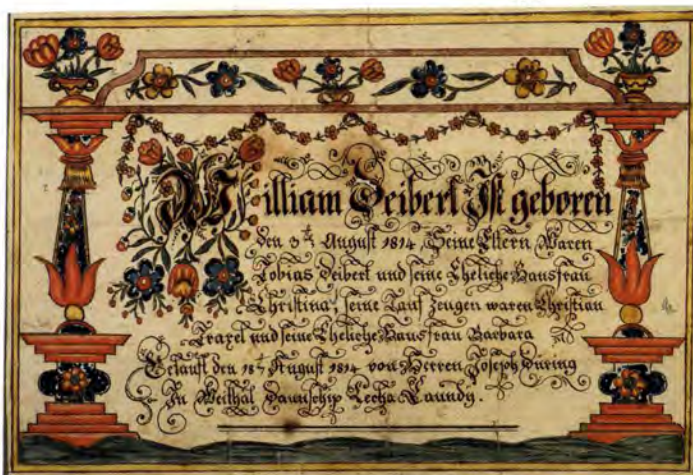 William Deibert Ist geboren
den 3t August 1814, Seine Eltern Waren
Tobias Deibert und seine Eheliche Hausfrau
Christina, seine Tauf Zeugen waren Christian
Traxel und seine Eheliche Hausfrau Barbara
Getauft den 18t August 1814 von Herren Joseph During
In Weithal Daunschip Lecha Caundy.